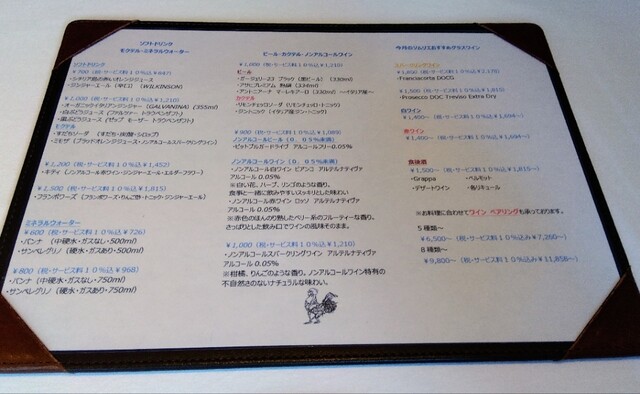 ソフトドリンク
モクテル・ミネラルウォーター
ソフトドリンク
￥700（税・サービス料１０％込￥847）
・シチリア島の赤いオレンジジュース
・ジンジャーエール（辛口）（WILKINSON）
￥1,000（税・サービス料１０％込￥1,210）
・オーガニックイタリアンジンジャー（GALVANINA）（355ml）
・白ぶどうジュース
・黒ぶどうジュース
モクテル
・すだちソーダ （すだち・炭酸・シロップ）
・ミモザ（ブラッドオレンジジュース・ノンアルコールスパークリングワイン）
￥1,200（税・サービス料１０％込￥1,452）
・キティ（ノンアルコール赤ワイン・ジンジャーエール・エルダーフラワー）
￥1,500（税・サービス料１０％込￥1,815）
・フランボワーズ（フランボワーズ・りんご酢・トニック・ジンジャーエール）
ミネラルウォーター
￥600（税・サービス料１０％込￥726）
・パンナ（中硬水・ガスなし・500ml）
・サンペレグリノ（硬水・ガスあり・500ml）
￥800（税・サービス料１０％込￥968）
・パンナ（中硬水・ガスなし・750ml）
・サンペレグリノ（硬水・ガスあり・750ml）
ビール・カクテル・ノンアルコールワイン
￥1,000（税・サービス料１０％込￥1,210）
ビール
ブラック（黒ビール）（330ml）
・アサヒプレミアム 熟撰（334ml）
（330ml）～イタリア産～
カクテル
・リモンチェロソーダ（リモンチェロ・トニック）
・ジントニック（イタリア産ジン・トニック）
￥900（税・サービス料１０％込￥1,089）
ノンアルコールビール（０．０５％未満）
・ピットブルガードライブ アルコールフリー0.05%
ノンアルコールワイン（０．０５％未満）
・ノンアルコール白ワイン ビアンコ アルテルナティヴァ
アルコール 0.05%
※白い花、ハーブ、リンゴのような香り。
食事と一緒に飲みやすいスッキリした味わい
・ノンアルコール赤ワイン ロッソ アルテルナティヴァ
アルコール 0.05%
※赤色のほんのり熟したベリー系のフルーティーな香り。
さっぱりとした飲み口でワインの風味そのまま。
￥1,000（税・サービス料１０％込￥1,210）
・ノンアルコールスパークリングワイン アルテルナティヴァ
アルコール 0.05%
※柑橘、りんごのような香り。ノンアルコールワイン特有の
不自然さのないナチュラルな味わい。
今月のソムリエおすすめグラスワイン
スパークリングワイン
￥1,800（税・サービス料１０％込￥2,178）
・Franciacorta DOCG
￥1,500（税・サービス料１０％込￥1,815）
・Prosecco DOC Treviso Extra Dry
白ワイン
￥1,400～（税・サービス料１０％込￥1,694～）
赤ワイン
￥1,400～（税・サービス料１０％込￥1,694～）
食後酒
￥1,500～（税・サービス料１０％込￥1,815～）
・Grappa ・ベルモット
・デザートワイン ・各リキュール
※お料理に合わせてワイン ペアリングも承っております。
５種類～
￥6,500～（税・サービス料１０％込み￥7,260～）
８種類～
￥9,800～（税・サービス料１０％込み￥11,858～）